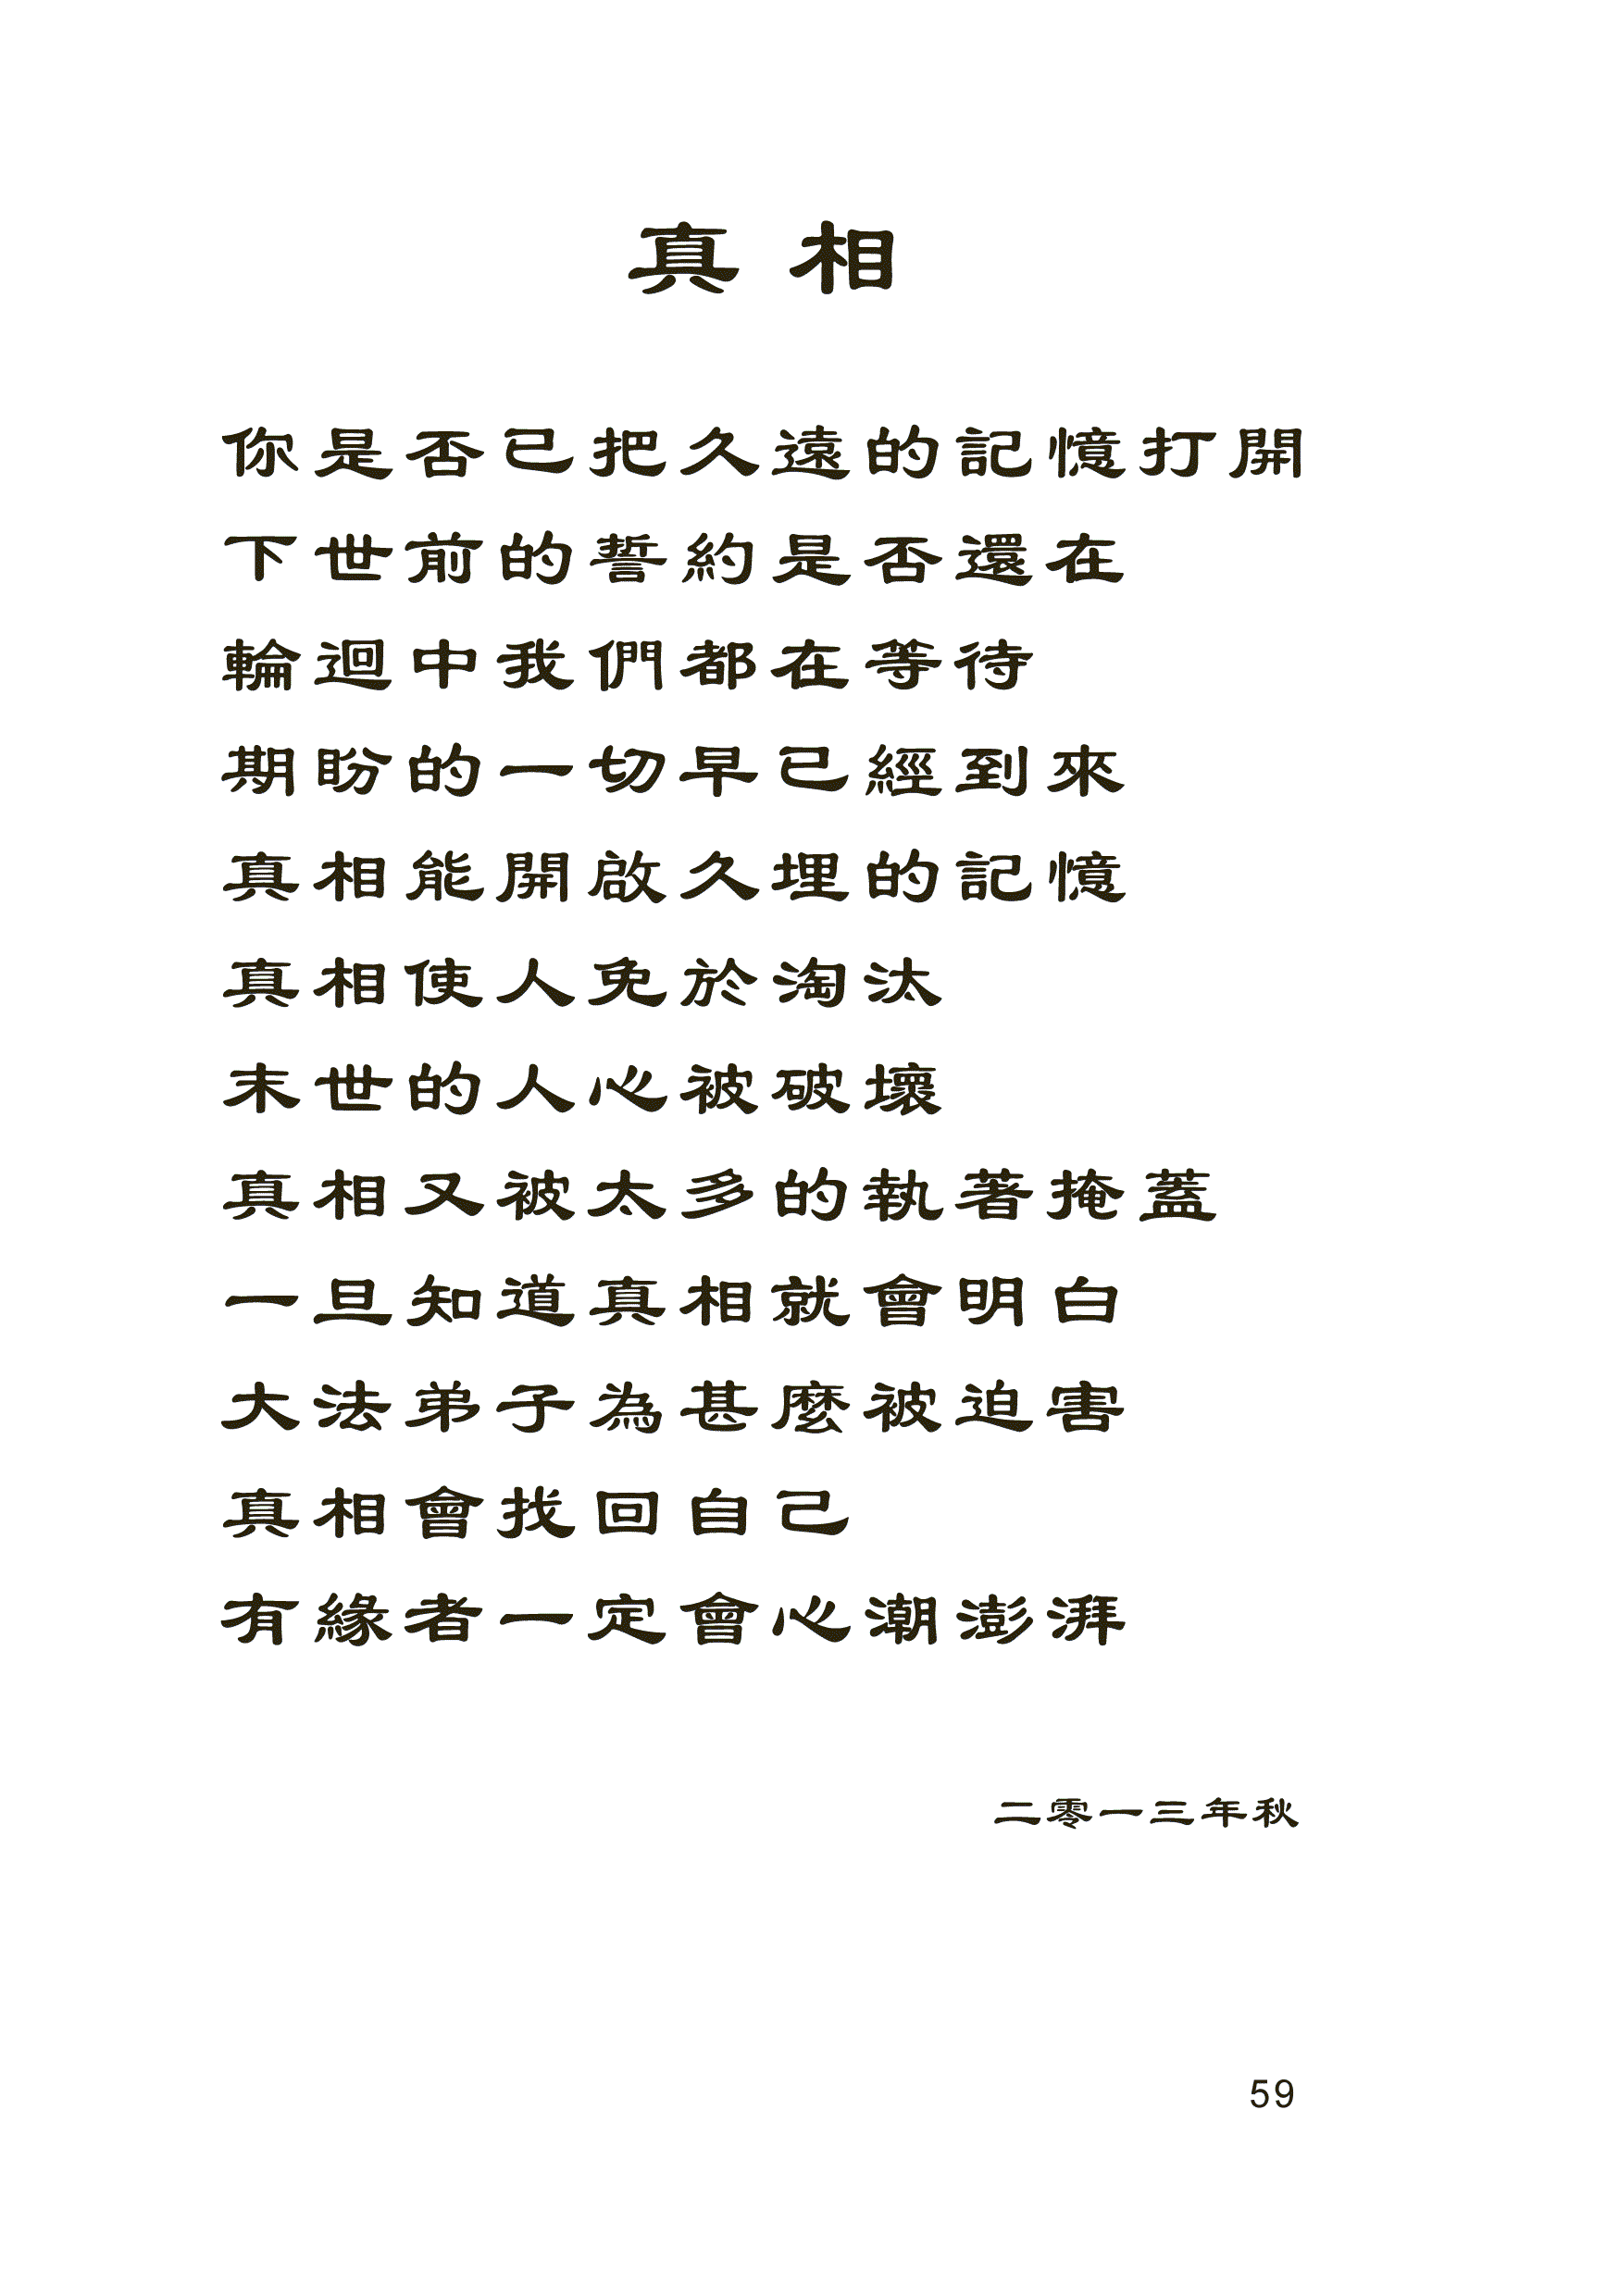 真相
你是否已把久遠的記憶打開
下世前的誓約是否還在
輪迴中我們都在等待
期盼的一切早已經到來
真相能開啟久埋的記憶
真相使人免於淘汰
末世的人心被破壞
真相又被太多的執著掩蓋
一旦知道真相就會明白
大法弟子為甚麼被迫害
真相會找回自己
有緣者一定會心潮澎湃
二零一三年秋
59